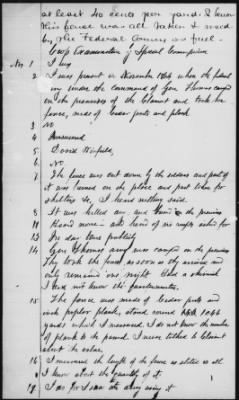 at least 40 cents per yard. I know
this fence was all taken & used
by the Federal Army as fuel.
Cross Examination of Special Commissioner
No 1 I
2 I was present in November 1864 when the federal
army under the command of Gen Thomas camped
on the premises of the Claimant and took her
fence, made of cedar posts and plank
3 No
4 Answered
5 David
6 No
7 The fence was cut down by the soldiers and part of
it was burned on the place and part taken for
shelters &c, I heard nothing said.
8 It was hauled away and burned on the premises
11 Heard none - and heard of no receipts asked for
13 In day time publicly
14 Gen Thomas army was camped on the premises
They took the fence as soon as they arrived and
only remained one night
I did not know the quartermasters.
15 The fence was made of cedar posts and
inch poplar plank, stood round 1066
yards which I measured. I do not know the number
of plank to the pannel. I never talked to Claimant
about the value.
16 I measured the length of the fence as stated and all
I know about the quantity of it.
17 I saw the army using it